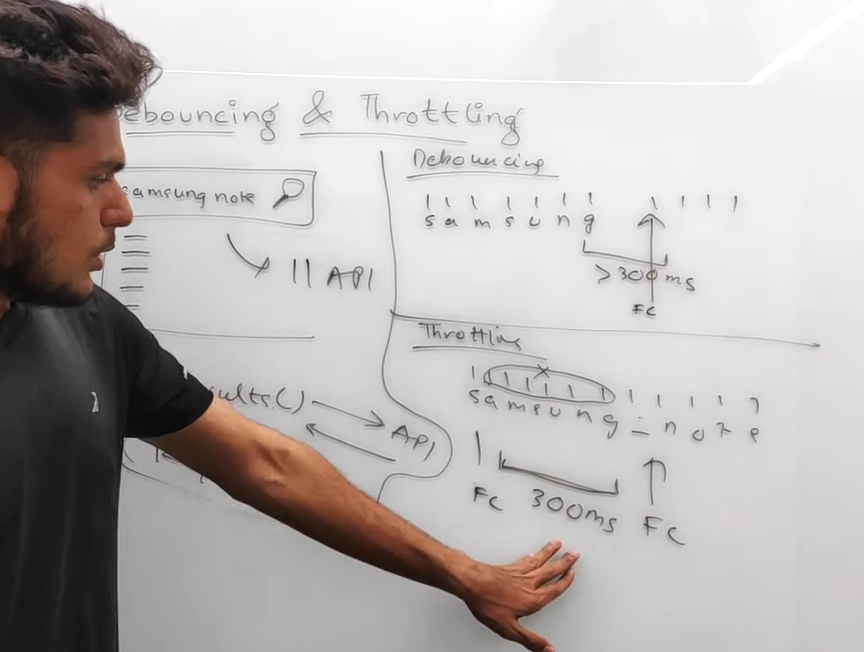 ebouncing & Throttling
amsung note
|| API
ults()
API
Debouncing
s a m s u n g
> 300 ms
FC
Throttling
s a m s u n g _ n o t e
FC 300ms FC